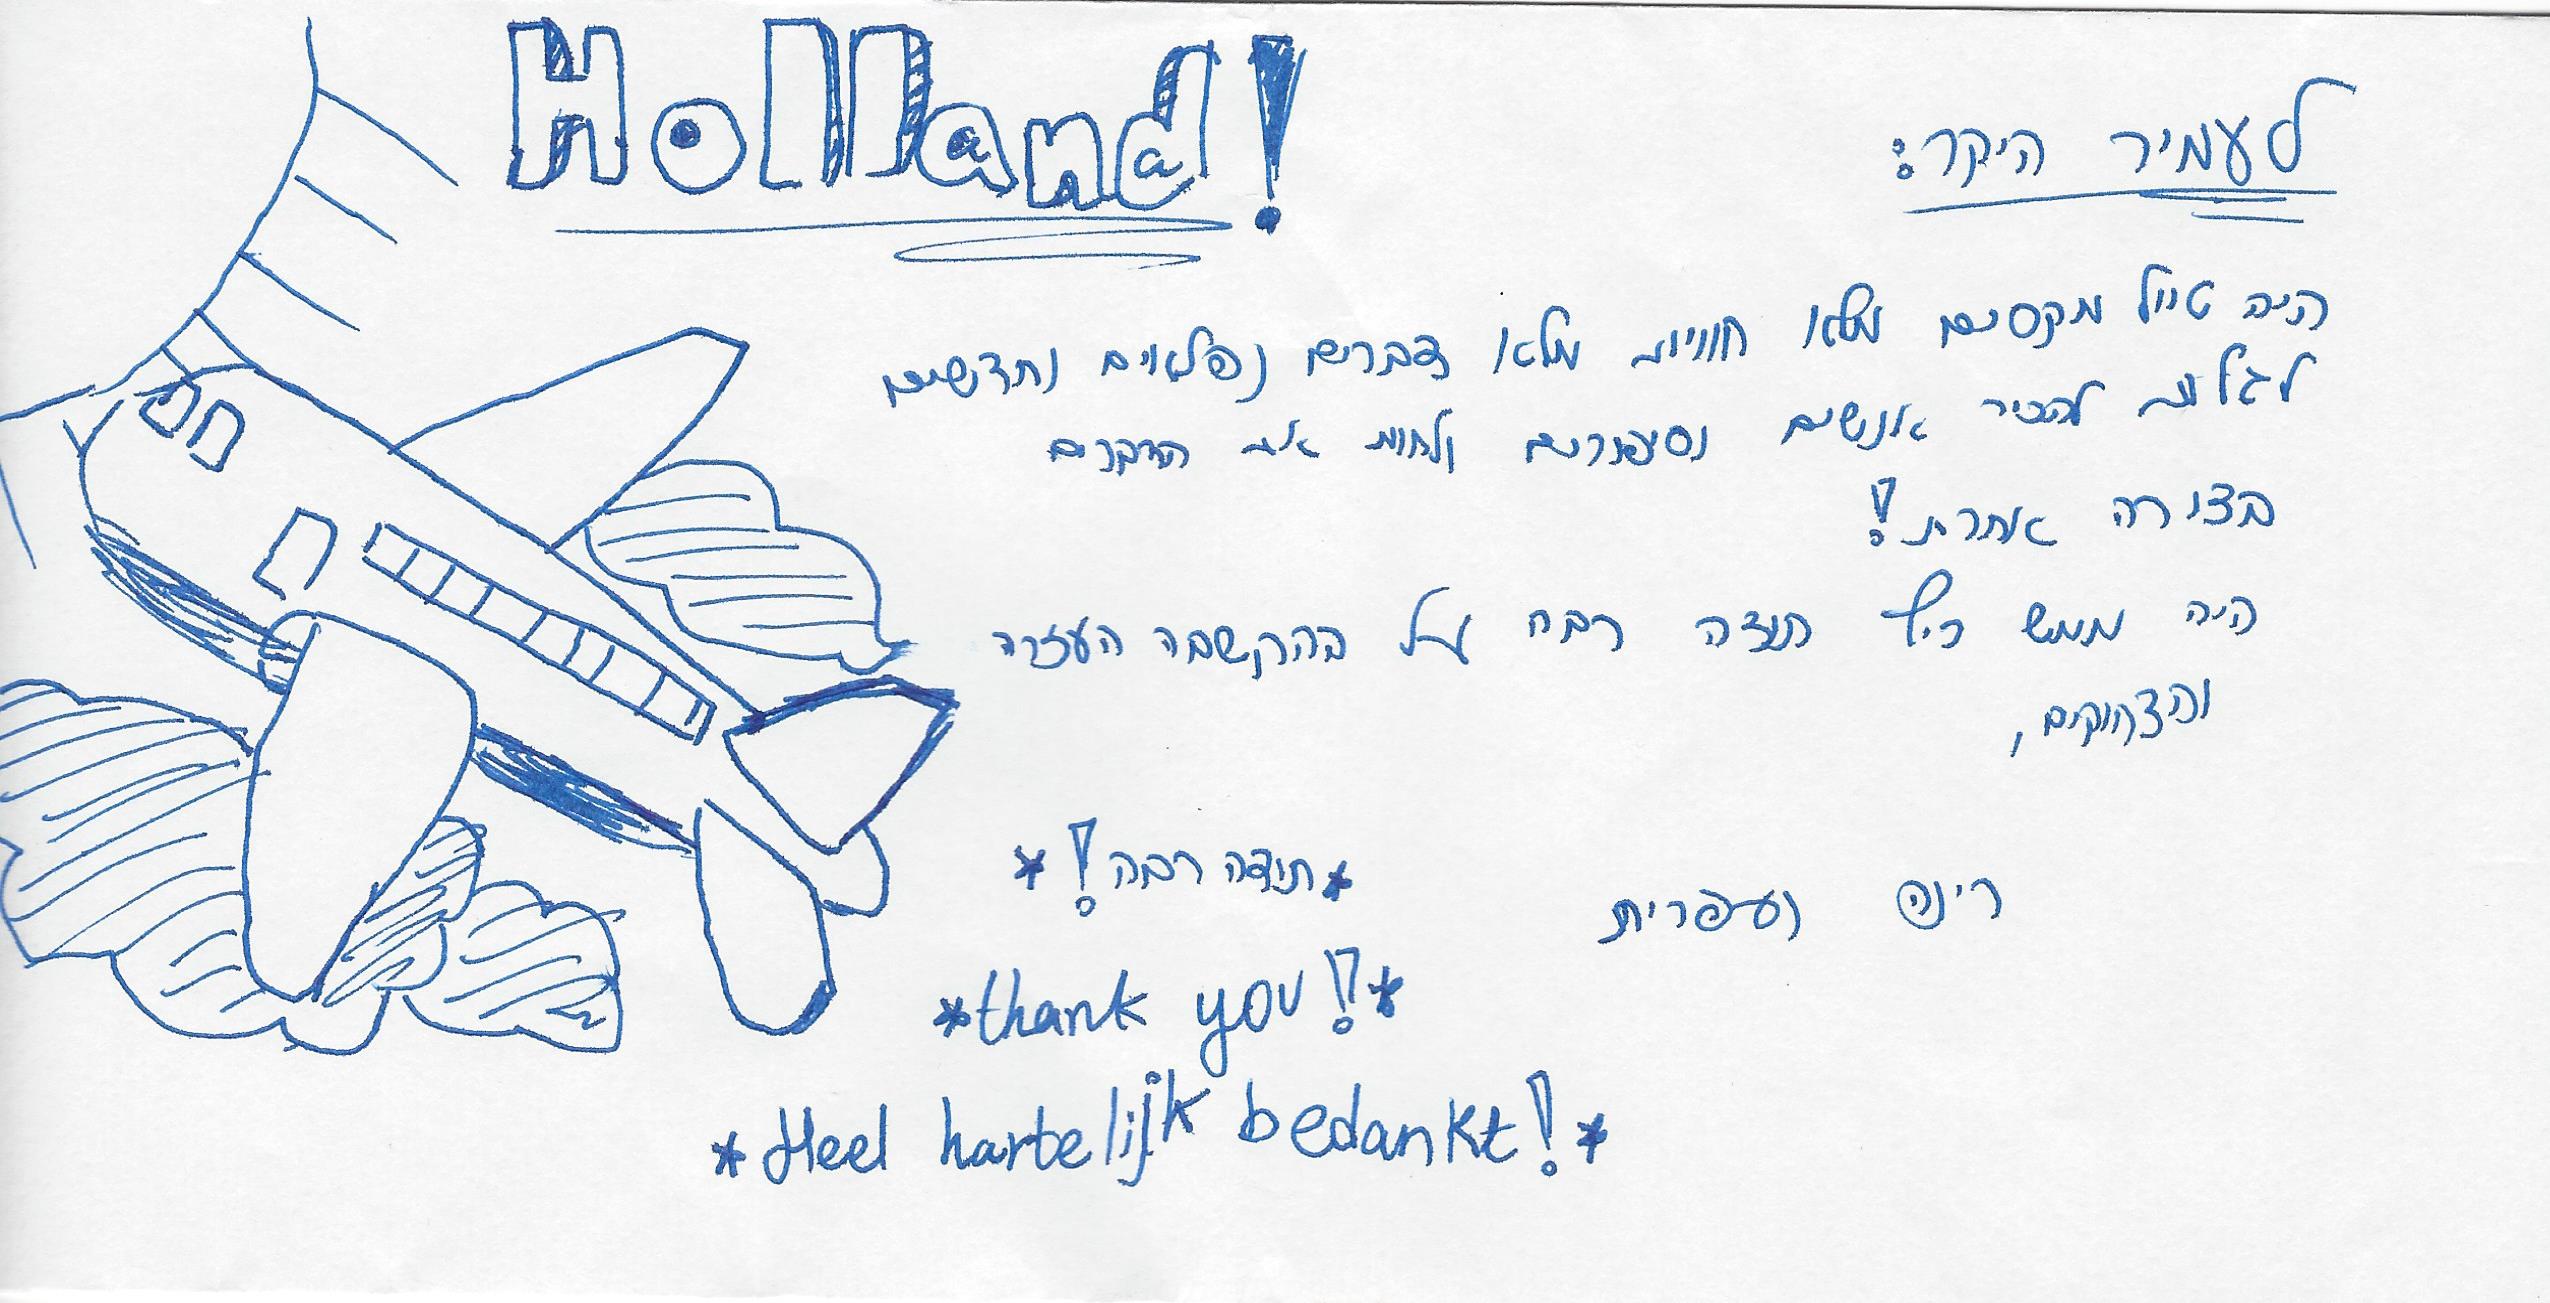 Holland!
לעמיר היקר:
היה טיול מקסים מלא חוויות מלא דברים נפלאים וחדשים
לגלות להכיר אנשים וסיפורים ולחוות את הדברים
בצורה אחרת!
היה ממש כיף תודה רבה על ההקשבה העזרה
והצחוקים,
רינה ועפרית
*תודה רבה!*
*thank you!*
*Heel hartelijk bedankt!*